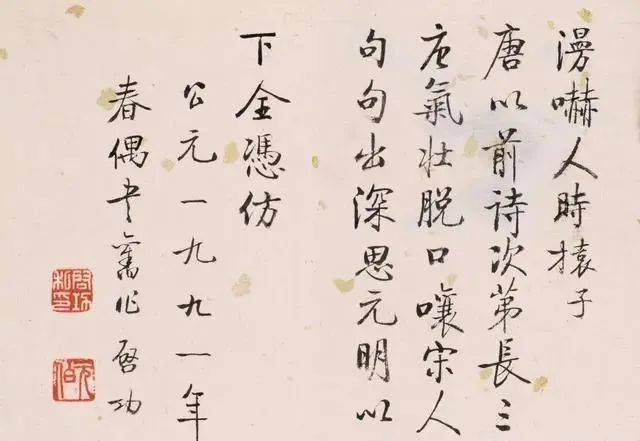 漫嚇人時子
唐以前詩次第長三
唐氣壯脫口嚷宋人
句句出深思元明以
下全憑仿
公元一九九一年
春偶書舊作 啓功
啓功私印
元伯